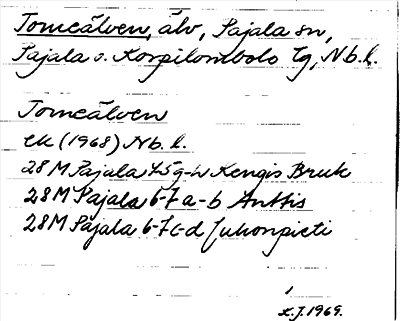 Torneälven, älv, Pajala sn,
Pajala o. Korpilombolo tg, Nb. l.
Torneälven
ek (1968) Nb. l.
28 M Pajala 4-5 g-h Kengis Bruk
28 M Pajala 6-7 a-b Anttis
28 M Pajala 6-7 c-d Juhonpieti
1969.